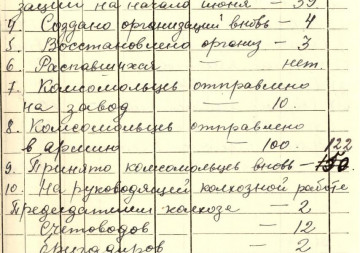 зации на начало июня — 39
4. Создано организаций вновь — 4
5. Восстановлено организ — 3
6. Распавшихся — нет.
7. Комсомольцев отправлено
на завод — 10.
8. Комсомольцев отправлено
в армию — 100. 122
9. Принято комсомольцев вновь — 150.
10. На руководящей колхозной работе
Председателем колхоза — 2
Счетоводов — 12
бригадиров — 2